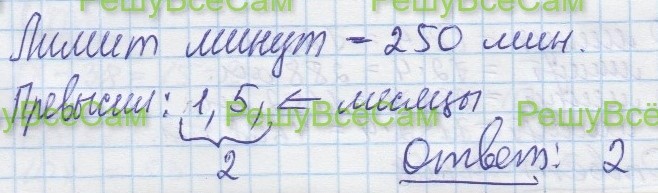 РешуВсеСам РешуВсеСам
Лимит минут – 250 мин.
Превысил: 1, 5, ← месяцы
РешуВсеСам РешуВсё
2 Ответ: 2